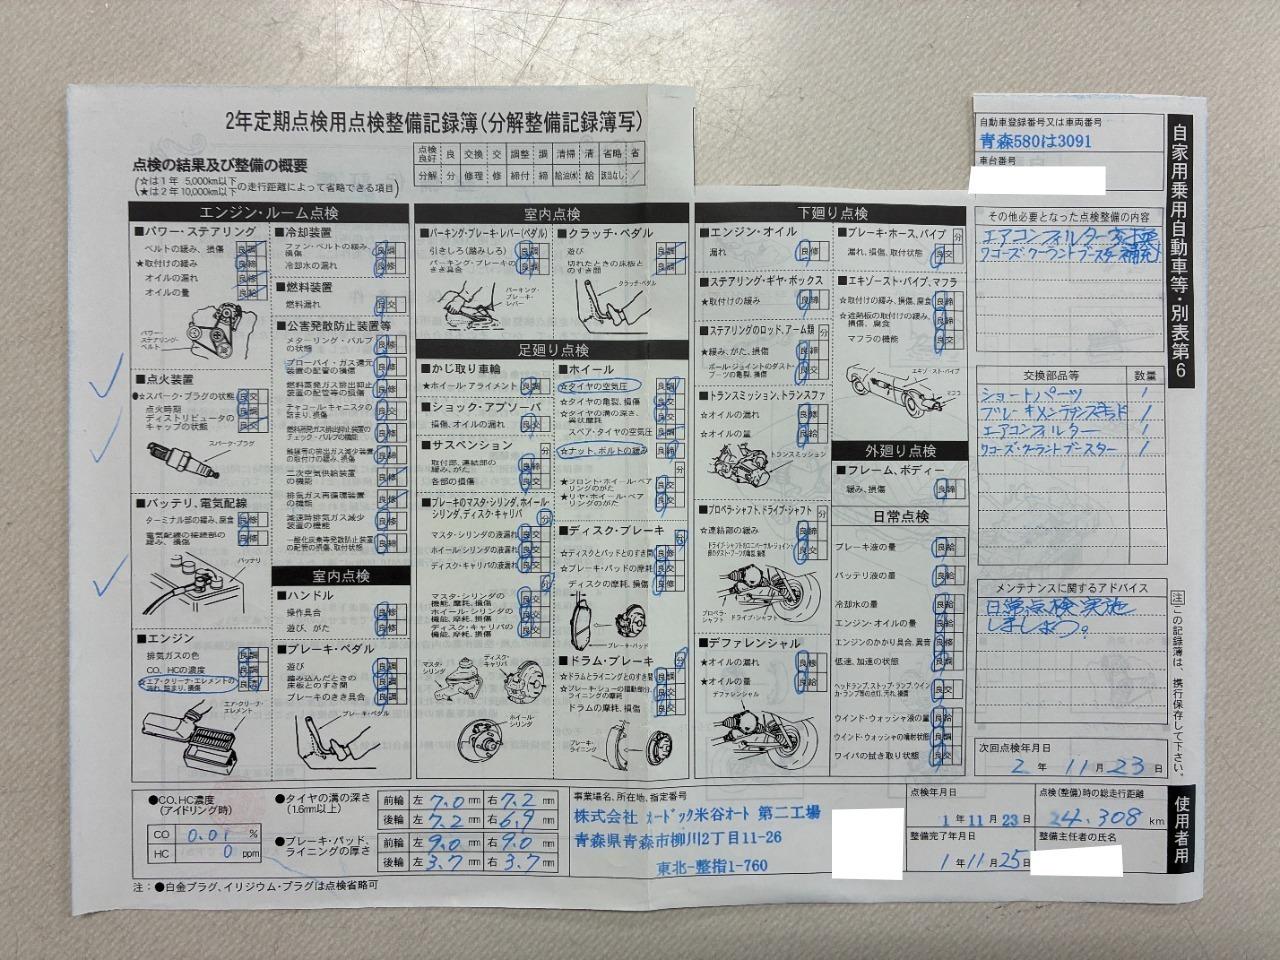 2年定期点検用点検整備記録簿(分解整備記録簿写)
点検の結果及び整備の概要
(☆は1年 5,000km以下
★は2年10,000km以下 の走行距離によって省略できる項目)
点検良好 良 交換 交 調整 調 清掃 清 省略 省
分解 分 修理 修 締付 締 給油(水) 給 該当なし ／
自動車登録番号又は車両番号
青森580は3091
車台番号
自家用乗用自動車等・別表第6
エンジン・ルーム点検
■パワー・ステアリング
ベルトの緩み、損傷
★取付けの緩み
オイルの漏れ
オイルの量
パワー・ステアリング・ベルト
■点火装置
●☆スパーク・プラグの状態
点火時期
ディストリビュータのキャップの状態
スパーク・プラグ
■バッテリ、電気配線
ターミナル部の緩み、腐食
電気配線の接続部の緩み、損傷
バッテリ
■エンジン
排気ガスの色
CO、HCの濃度
☆エア・クリーナ・エレメントの汚れ、詰まり、損傷
エア・クリーナ・エレメント
■冷却装置
ファン・ベルトの緩み、損傷
冷却水の漏れ
■燃料装置
燃料漏れ
■公害発散防止装置等
メターリング・バルブの状態
ブローバイ・ガス還元装置の配管の損傷
燃料蒸発ガス排出抑止装置の配管等の損傷
チャコール・キャニスタの詰まり、損傷
燃料蒸発ガス排出抑止装置のチェック・バルブの機能
触媒等の排出ガス減少装置の取付けの緩み、損傷
二次空気供給装置の機能
排気ガス再循環装置の機能
減速時排気ガス減少装置の機能
一酸化炭素等発散防止装置の配管の損傷、取付状態
室内点検
■ハンドル
操作具合
遊び、がた
■ブレーキ・ペダル
遊び
踏み込んだときの床板とのすき間
ブレーキのきき具合
ブレーキ・ペダル
室内点検
■パーキング・ブレーキ・レバー(ペダル)
引きしろ(踏みしろ)
パーキング・ブレーキのきき具合
パーキング・ブレーキ・レバー
■クラッチ・ペダル
遊び
切れたときの床板とのすき間
クラッチ・ペダル
足廻り点検
■かじ取り車輪
★ホイール・アライメント
■ショック・アブソーバ
損傷、オイルの漏れ
■サスペンション
取付部、連結部の緩み、がた
各部の損傷
■ブレーキのマスタ・シリンダ、ホイール・シリンダ、ディスク・キャリパ
マスタ・シリンダの液漏れ
ホイール・シリンダの液漏れ
ディスク・キャリパの液漏れ
マスタ・シリンダの機能、摩耗、損傷
ホイール・シリンダの機能、摩耗、損傷
ディスク・キャリパの機能、摩耗、損傷
マスタ・シリンダ
ディスク・キャリパ
ホイール・シリンダ
■ホイール
☆タイヤの空気圧
☆タイヤの亀裂、損傷
☆タイヤの溝の深さ、異状摩耗
スペア・タイヤの空気圧
☆ナット、ボルトの緩み
★フロント・ホイール・ベアリングのがた
★リヤ・ホイール・ベアリングのがた
■ディスク・ブレーキ
☆ディスクとパッドとのすき間
☆ブレーキ・パッドの摩耗
ディスクの摩耗、損傷
ブレーキ・パッド
■ドラム・ブレーキ
☆ドラムとライニングとのすき間
☆ブレーキ・シューの摺動部分、ライニングの摩耗
ドラムの摩耗、損傷
ブレーキ・ライニング
下廻り点検
■エンジン・オイル
漏れ
■ステアリング・ギヤ・ボックス
★取付けの緩み
■ステアリングのロッド、アーム類
★緩み、がた、損傷
ボール・ジョイントのダスト・ブーツの亀裂、損傷
■トランスミッション、トランスファ
☆オイルの漏れ
☆オイルの量
トランスミッション
■プロペラ・シャフト、ドライブ・シャフト
☆連結部の緩み
ドライブ・シャフトのユニバーサル・ジョイント部のダスト・ブーツの亀裂、損傷
プロペラ・シャフト
ドライブ・シャフト
■デファレンシャル
★オイルの漏れ
★オイルの量
デファレンシャル
■ブレーキ・ホース、パイプ
漏れ、損傷、取付状態
■エキゾースト・パイプ、マフラ
☆取付けの緩み、損傷、腐食
☆遮熱板の取付けの緩み、損傷、腐食
マフラの機能
エキゾースト・パイプ
マフラ
外廻り点検
■フレーム、ボディー
緩み、損傷
日常点検
ブレーキ液の量
バッテリ液の量
冷却水の量
エンジン・オイルの量
エンジンのかかり具合、異音
低速、加速の状態
ヘッドランプ、ストップ・ランプ、ウインカ・ランプ等の点灯、汚れ、損傷
ウインド・ウォッシャ液の量
ウインド・ウォッシャの噴射状態
ワイパの拭き取り状態
その他必要となった点検整備の内容
エアコンフィルター交換
ワコーズ・クーラントブースター補充
交換部品等 数量
ショートパーツ 1
ブレーキメンテナンスキッド 1
エアコンフィルター 1
ワコーズ・クーラントブースター 1
メンテナンスに関するアドバイス
日常点検実施
しましょう。
次回点検年月日
2年 11月 23日
注 この記録簿は、携行保存して下さい。
使用者用
●CO、HC濃度(アイドリング時)
CO 0.01 %
HC 0 ppm
●タイヤの溝の深さ(1.6mm以上)
前輪 左 7.0 mm 右 7.2 mm
後輪 左 7.2 mm 右 6.9 mm
●ブレーキ・パッド、ライニングの厚さ
前輪 左 9.0 mm 右 9.0 mm
後輪 左 3.7 mm 右 3.7 mm
事業場名、所在地、指定番号
株式会社 メードック米谷オート 第二工場
青森県青森市柳川2丁目11-26
東北-整指1-760
点検年月日
1年 11月 23日
整備完了年月日
1年 11月 25日
点検(整備)時の総走行距離
24,308 km
整備主任者の氏名
注：●白金プラグ、イリジウム・プラグは点検省略可